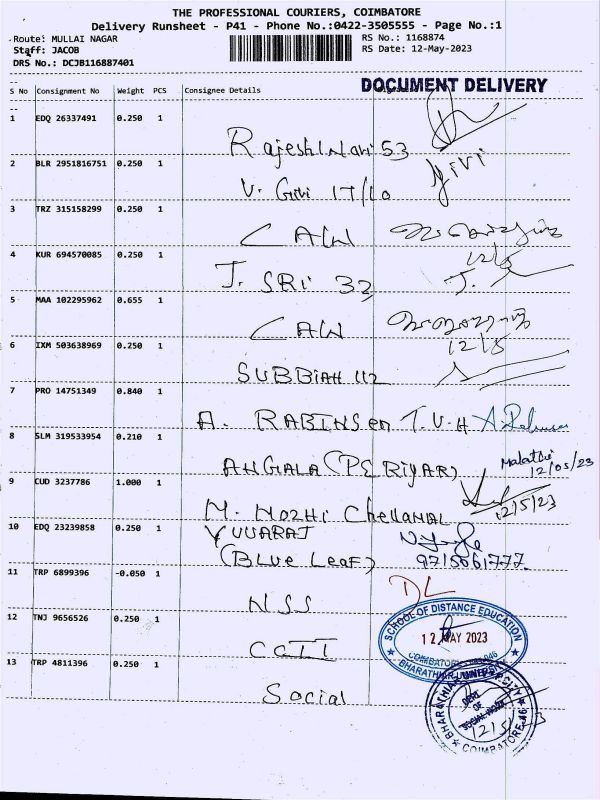 THE PROFESSIONAL COURIERS, COIMBATORE
Delivery Runsheet - P41 - Phone No.:0422-3505555 - Page No.:1
Route: MULLAI NAGAR
Staff: JACOB
DRS No.: DCJB116887401
RS No.: 1168874
RS Date: 12-May-2023
DOCUMENT DELIVERY
S No Consignment No Weight PCS Consignee Details
1 EDQ 26337491 0.250 1
2 BLR 2951816751 0.250 1 V. Giri 17/10
3 TRZ 315158299 0.250 1 CAW
4 KUR 694570085 0.250 1 J. SRI 32 12/5
5 MAA 102295962 0.655 1 CAW
6 IXM 503638969 0.250 1 SUBBIAH 112 12/5
7 PRO 14751349 0.840 1 A. RABINSEN T.V.H
8 SLM 319533954 0.210 1 ANGALA (PERIYAR) Malathi 12/05/23
9 CUD 3237786 1.000 1 M. MOZHI Chellamal 12/5/23
10 EDQ 23239858 0.250 1 YUVARAJ (BLUE LEAF)
11 TRP 6899396 -0.050 1 NSS
12 TNJ 9656526 0.250 1
13 TRP 4811396 0.250 1 Social
DL
SCHOOL OF DISTANCE EDUCATION
12 MAY 2023
COIMBATORE - 641 046
BHARATHIAR UNIVERSITY
BHARATHIAR UNIVERSITY
DEPT OF SOCIAL WORK
COIMBATORE-46